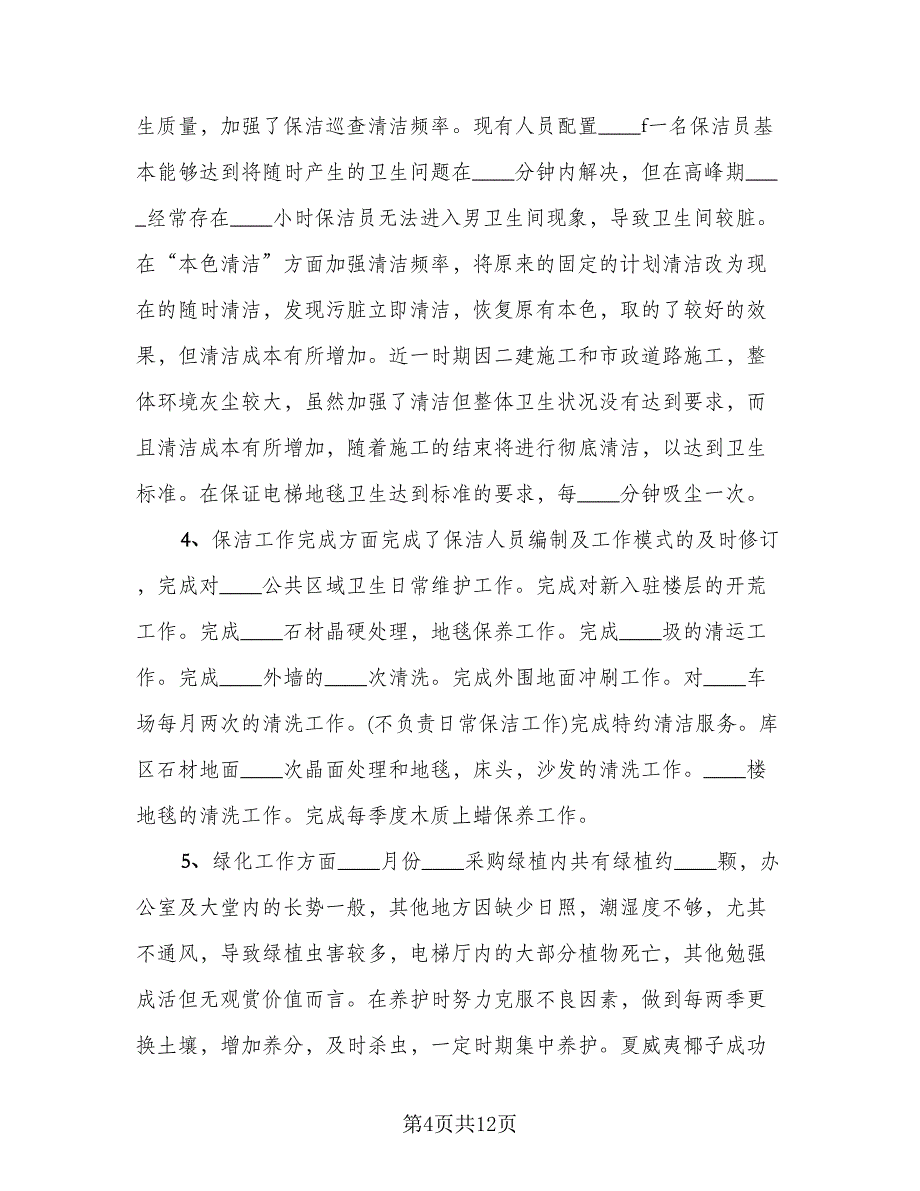 生质量，加强了保洁巡查清洁频率。现有人员配置____f一名保洁员基
本能够达到将随时产生的卫生问题在____分钟内解决，但在高峰期___
_经常存在____小时保洁员无法进入男卫生间现象，导致卫生间较脏。
在“本色清洁”方面加强清洁频率，将原来的固定的计划清洁改为现
在的随时清洁，发现污脏立即清洁，恢复原有本色，取的了较好的效
果，但清洁成本有所增加。近一时期因二建施工和市政道路施工，整
体环境灰尘较大，虽然加强了清洁但整体卫生状况没有达到要求，而
且清洁成本有所增加，随着施工的结束将进行彻底清洁，以达到卫生
标准。在保证电梯地毯卫生达到标准的要求，每____分钟吸尘一次。
4、保洁工作完成方面完成了保洁人员编制及工作模式的及时修订
，完成对____公共区域卫生日常维护工作。完成对新入驻楼层的开荒
工作。完成____石材晶硬处理，地毯保养工作。完成____圾的清运工
作。完成____外墙的____次清洗。完成外围地面冲刷工作。对____车
场每月两次的清洗工作。(不负责日常保洁工作)完成特约清洁服务。库
区石材地面____次晶面处理和地毯，床头，沙发的清洗工作。____楼
地毯的清洗工作。完成每季度木质上蜡保养工作。
5、绿化工作方面____月份____采购绿植内共有绿植约____颗，办
公室及大堂内的长势一般，其他地方因缺少日照，潮湿度不够，尤其
不通风，导致绿植虫害较多，电梯厅内的大部分植物死亡，其他勉强
成活但无观赏价值而言。在养护时努力克服不良因素，做到每两季更
换土壤，增加养分，及时杀虫，一定时期集中养护。夏威夷椰子成功
第4页共12页